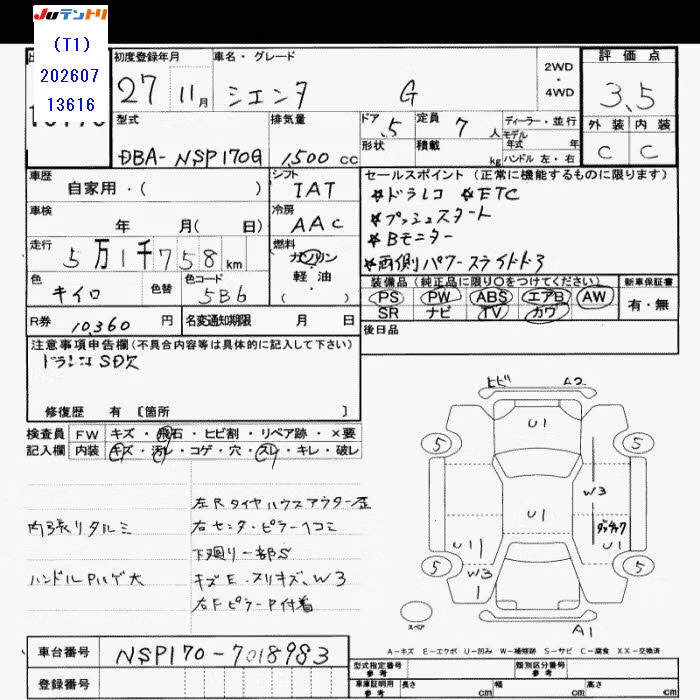 Juテントリ
(T1)
202607
13616
初度登録年月
27 11月
車名・グレード
シエンタ G
2WD
・
4WD
評価点
3.5
外装 内装
C C
型式
DBA-NSP170G
排気量
1,500 cc
ドア .5
形状
定員 7 人
積載 kg
ディーラー・並行
モデル
年式 年
ハンドル 左・右
車歴
自家用・( )
シフト
IAT
車検
年 月( 日)
冷房
AAC
走行
5万1千758 km
燃料
ガソリン
軽・油
( )
色
キイロ
色替
色コード
5B6
R券 10,360 円
名変通知期限 月 日
セールスポイント(正常に機能するものに限ります)
☆ドラレコ ☆ETC
☆プッシュスタート
☆Bモニター
☆両側パワースライドドア
装備品(純正品に限り〇をつけてください)
PS PW ABS エアB AW
SR ナビ TV カワ
新車保証書
有・無
後日品
注意事項申告欄(不具合内容等は具体的に記入して下さい)
ドラレコSD欠
修復歴 有 [箇所 ]
検査員 FW キズ・飛石・ヒビ割・リペア跡・×要
記入欄 内装 キズ・汚レ・コゲ・穴・スレ・キレ・破レ
左Rタイヤハウスアウター歪
内張リタルミ
右センターピラーヘコミ
下廻り一部S
ハンドルハゲ大
キズE.スリキズ、W3
右FピラーP付着
ヒビ A2
U1
5 5
W3
U1
ダッチャク
U1 U1
5 5
W3
1
スペア
A1
A-キズ E-エクボ U-凹み W-補修跡 S-サビ C-腐食 XX-交換済
車台番号 NSP170-7018983
登録番号
型式指定番号
参考
類別区分番号
参考
車庫証明用
参考
長さ cm 幅 cm 高さ cm